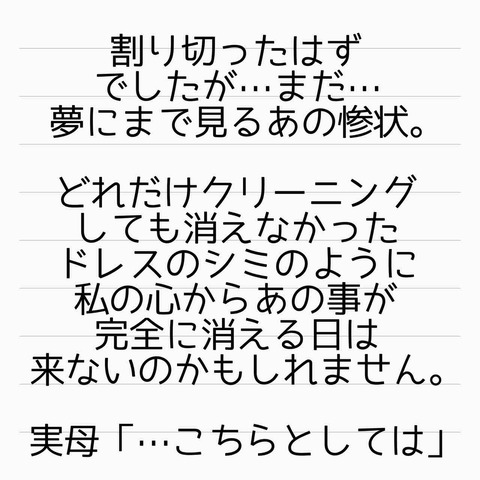 割り切ったはず
でしたが…まだ…
夢にまで見るあの惨状。
どれだけクリーニング
しても消えなかった
ドレスのシミのように
私の心からあの事が
完全に消える日は
来ないのかもしれません。
実母「…こちらとしては」